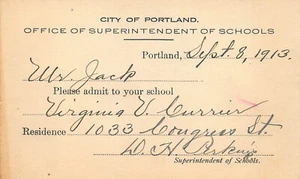 CITY OF PORTLAND.
OFFICE OF SUPERINTENDENT OF SCHOOLS
Portland, Sept. 8, 1913.
Mr. Jack
Please admit to your school
Virginia V. Currier
Residence 1033 Congress St.
D. H. Perkins
Superintendent of Schools.